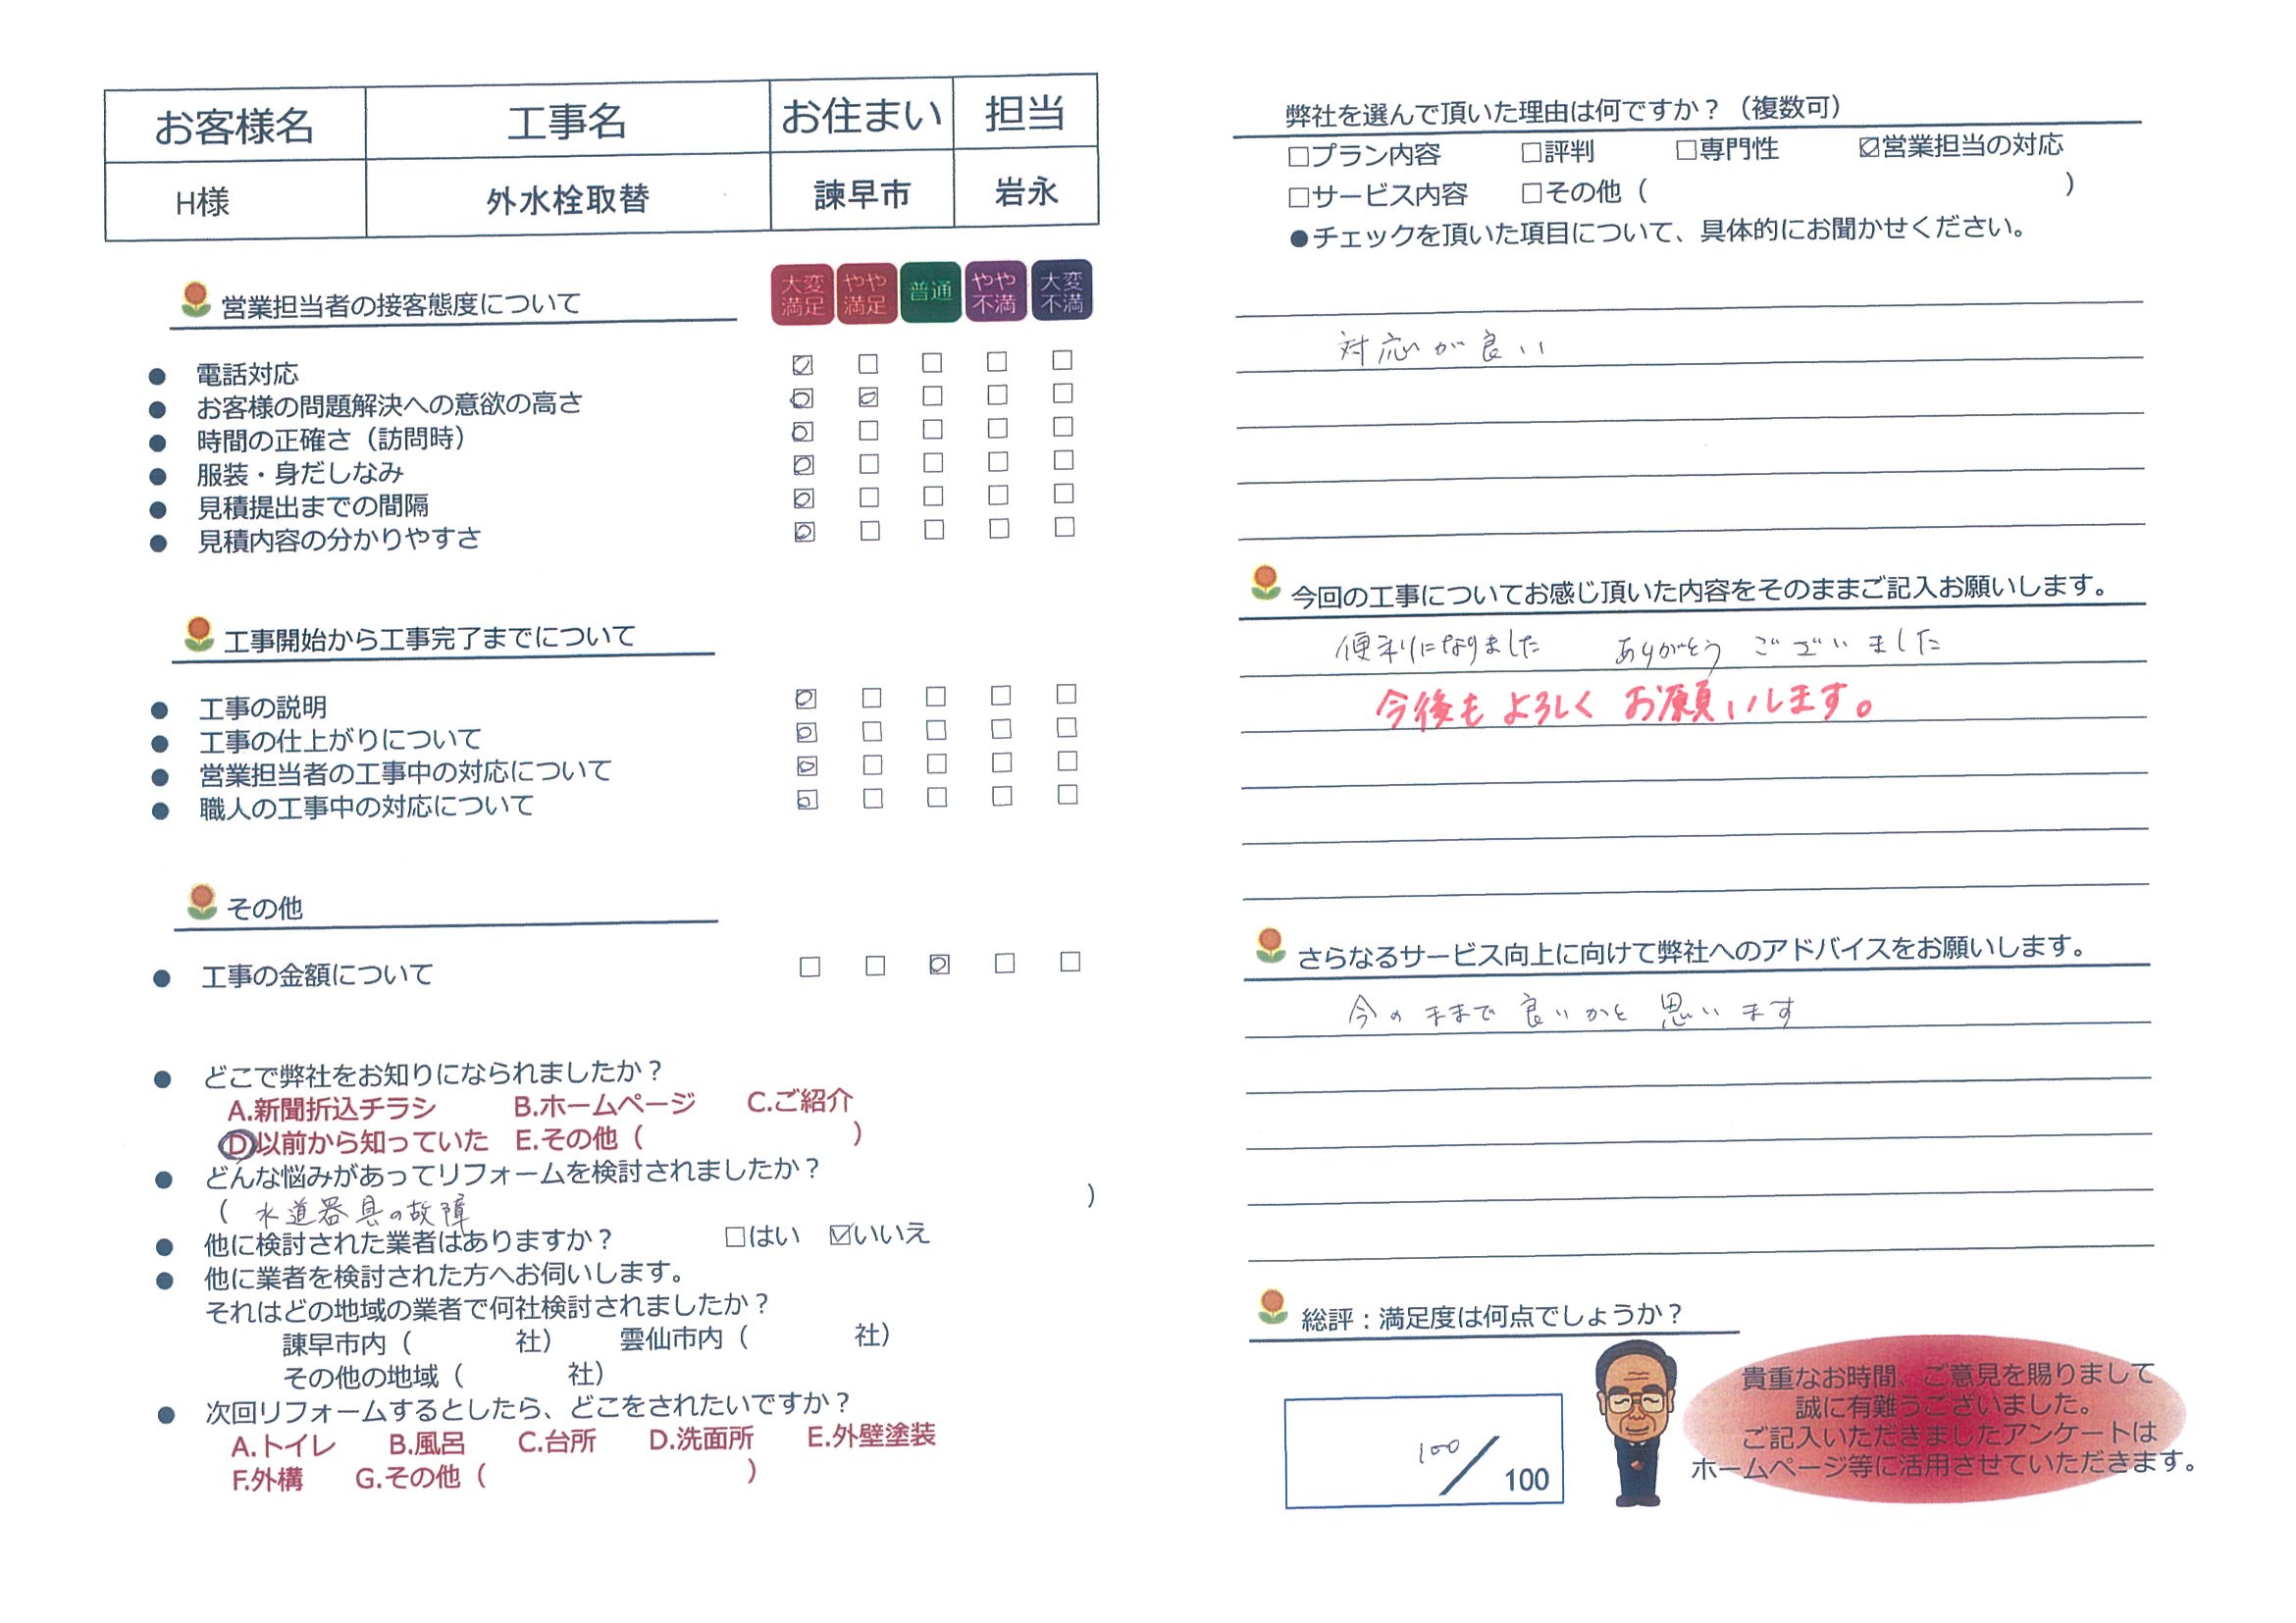 お客様名 工事名 お住まい 担当
H様 外水栓取替 諫早市 岩永
営業担当者の接客態度について 大変満足 やや満足 普通 やや不満 大変不満
● 電話対応 ☑ □ □ □ □
● お客様の問題解決への意欲の高さ ☑ ☑ □ □ □
● 時間の正確さ（訪問時） ☑ □ □ □ □
● 服装・身だしなみ ☑ □ □ □ □
● 見積提出までの間隔 ☑ □ □ □ □
● 見積内容の分かりやすさ ☑ □ □ □ □
工事開始から工事完了までについて
● 工事の説明 ☑ □ □ □ □
● 工事の仕上がりについて ☑ □ □ □ □
● 営業担当者の工事中の対応について ☑ □ □ □ □
● 職人の工事中の対応について ☑ □ □ □ □
その他
● 工事の金額について □ □ ☑ □ □
● どこで弊社をお知りになられましたか？
A.新聞折込チラシ B.ホームページ C.ご紹介
D以前から知っていた E.その他（ ）
● どんな悩みがあってリフォームを検討されましたか？
（ 水道器具の故障 ）
● 他に検討された業者はありますか？ □はい ☑いいえ
● 他に業者を検討された方へお伺いします。
それはどの地域の業者で何社検討されましたか？
諫早市内（ 社） 雲仙市内（ 社）
その他の地域（ 社）
● 次回リフォームするとしたら、どこをされたいですか？
A.トイレ B.風呂 C.台所 D.洗面所 E.外壁塗装
F.外構 G.その他（ ）
弊社を選んで頂いた理由は何ですか？（複数可）
□プラン内容 □評判 □専門性 ☑営業担当の対応
□サービス内容 □その他（ ）
●チェックを頂いた項目について、具体的にお聞かせください。
対応が良い
今回の工事についてお感じ頂いた内容をそのままご記入お願いします。
便利になりました ありがとうございました
今後もよろしくお願いします。
さらなるサービス向上に向けて弊社へのアドバイスをお願いします。
今のままで良いかと思います
総評：満足度は何点でしょうか？
100／100
貴重なお時間、ご意見を賜りまして
誠に有難うございました。
ご記入いただきましたアンケートは
ホームページ等に活用させていただきます。